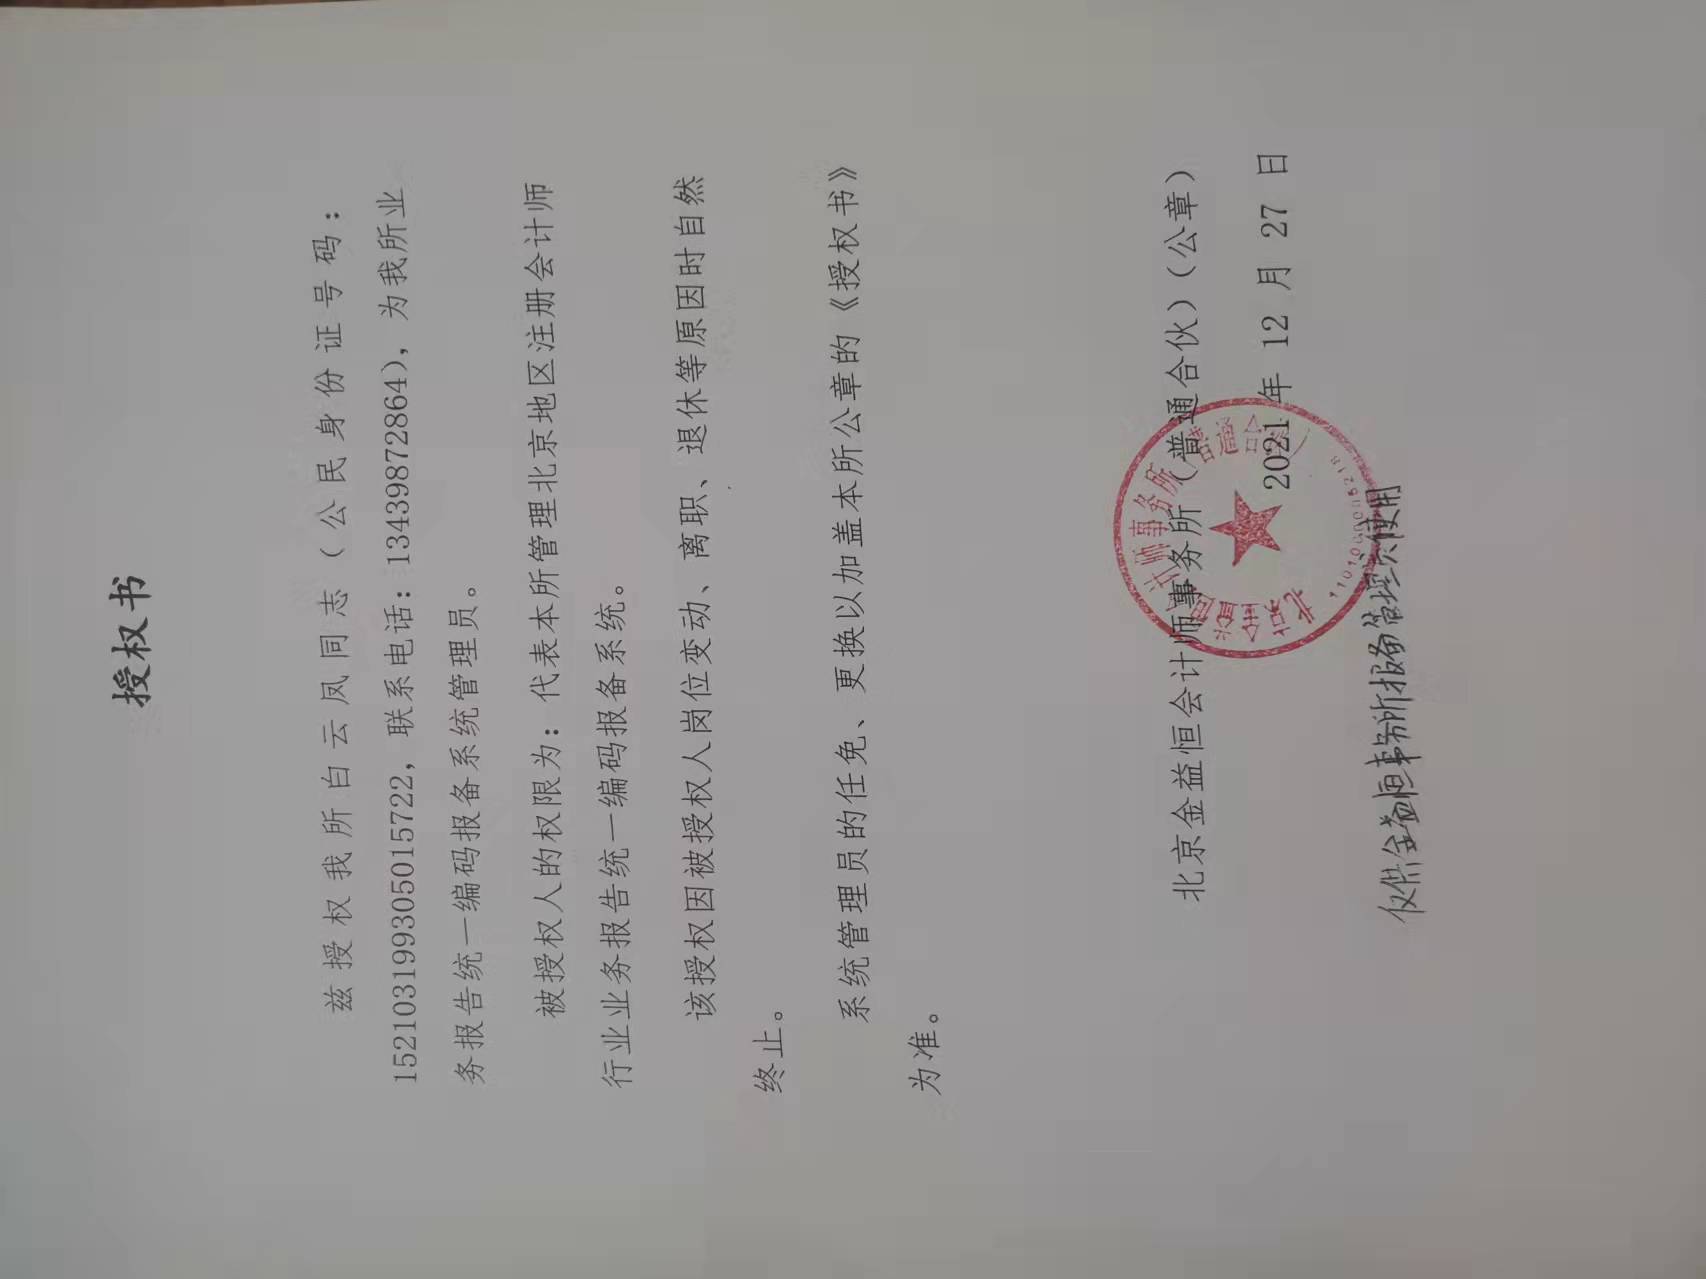 授权书
兹授权我所白云凤同志（公民身份证号码：
152103199305015722，联系电话：13439872864），为我所业
务报告统一编码报备系统管理员。
被授权人的权限为：代表本所管理北京地区注册会计师
行业业务报告统一编码报备系统。
该授权因被授权人岗位变动、离职、退休等原因时自然
终止。
系统管理员的任免、更换以加盖本所公章的《授权书》
为准。
北京金益恒会计师事务所（普通合伙）（公章）
2021年 12 月 27 日
北京金益恒会计师事务所（普通合伙）
仅供金益恒事务所报备管理员使用